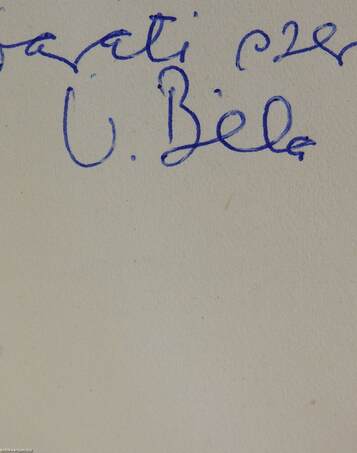 baráti szer
U. Béla